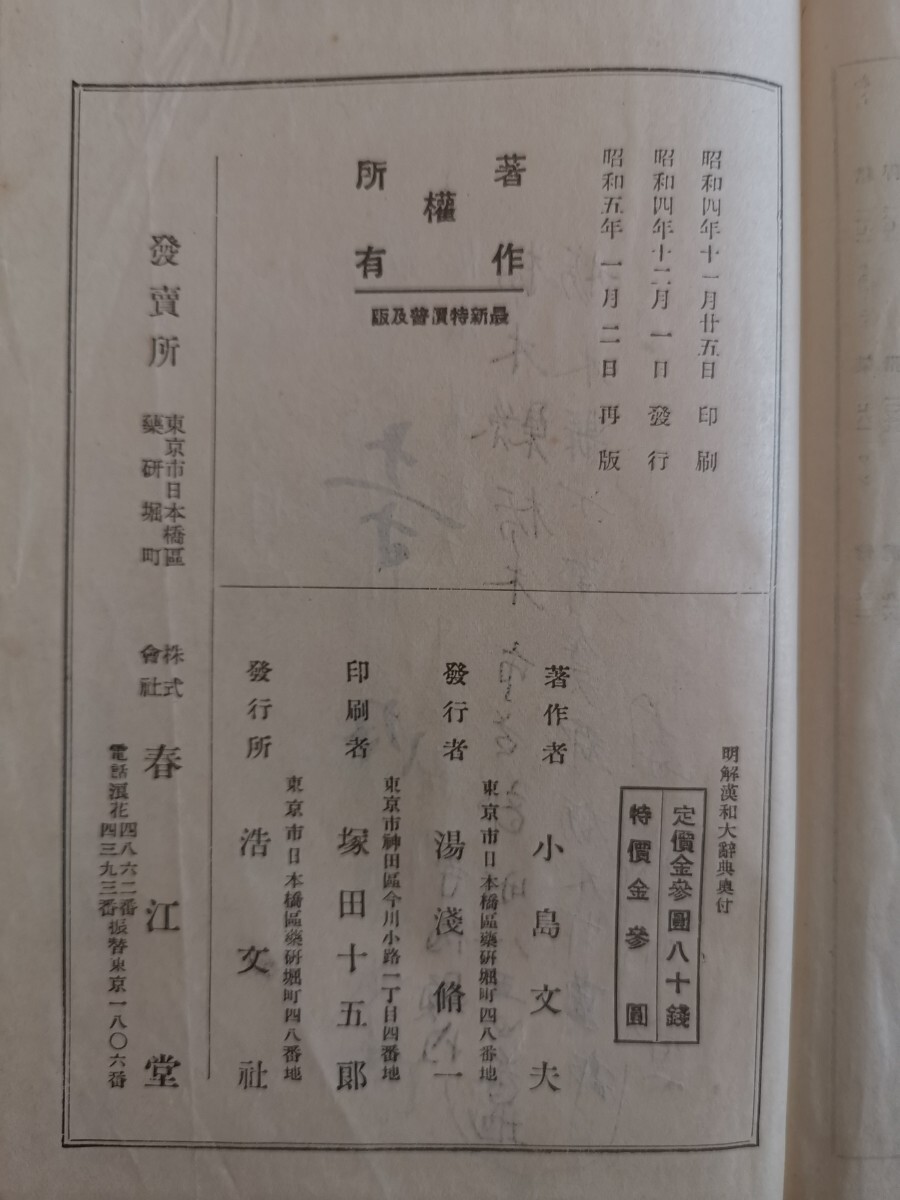 昭和四年十一月廿五日印刷
昭和四年十二月一日發行
昭和五年一月二日再版
著作
權
所有
最新特價普及版
明解漢和大辭典奧付
定價金參圓八十錢
特價金參圓
著作者 小島文夫
東京市日本橋區藥硏堀町四八番地
發行者 湯淺脩一
東京市神田區今川小路一丁目四番地
印刷者 塚田十五郞
東京市日本橋區藥硏堀町四八番地
發行所 浩文社
發賣所
東京市日本橋區
藥硏堀町
株式
會社
春江堂
電話浪花
四八六二番
四三九三番
振替東京一八〇六番